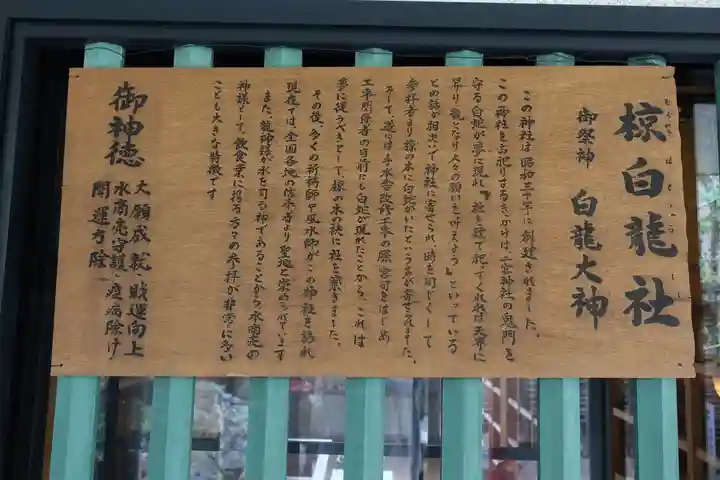 椋白龍社
御祭神　白龍大神
この神社は昭和三十年に創建されました。
この神社をお祀りするきっかけは、二宮神社の鬼門を
守る白蛇が夢に現れ『社を建て祀ってくれれば天界に
昇り龍となり人々の願いを叶えよう』といっている
との話が相次いで神社に寄せられ、時を同じくして
参拝者より椋の木に白蛇がいたという声が寄せられました。
そして、遂には手水舎改修工事の際、宮司をはじめ
工事関係者の目前にも白蛇が現れたことから、これは
夢に従うべきとして、椋の木の袂に社を築きました。
その後、多くの祈祷師や風水師がこの神社を訪れ
現在では、全国各地の信奉者より聖地と崇められています
また、龍神様が水を司る神であることから水商売の
神様として、飲食業に携る方々の参拝が非常に多い
ことも大きな特徴です
御神徳
大願成就、財運向上
水商売守護、疫病除け
開運方除